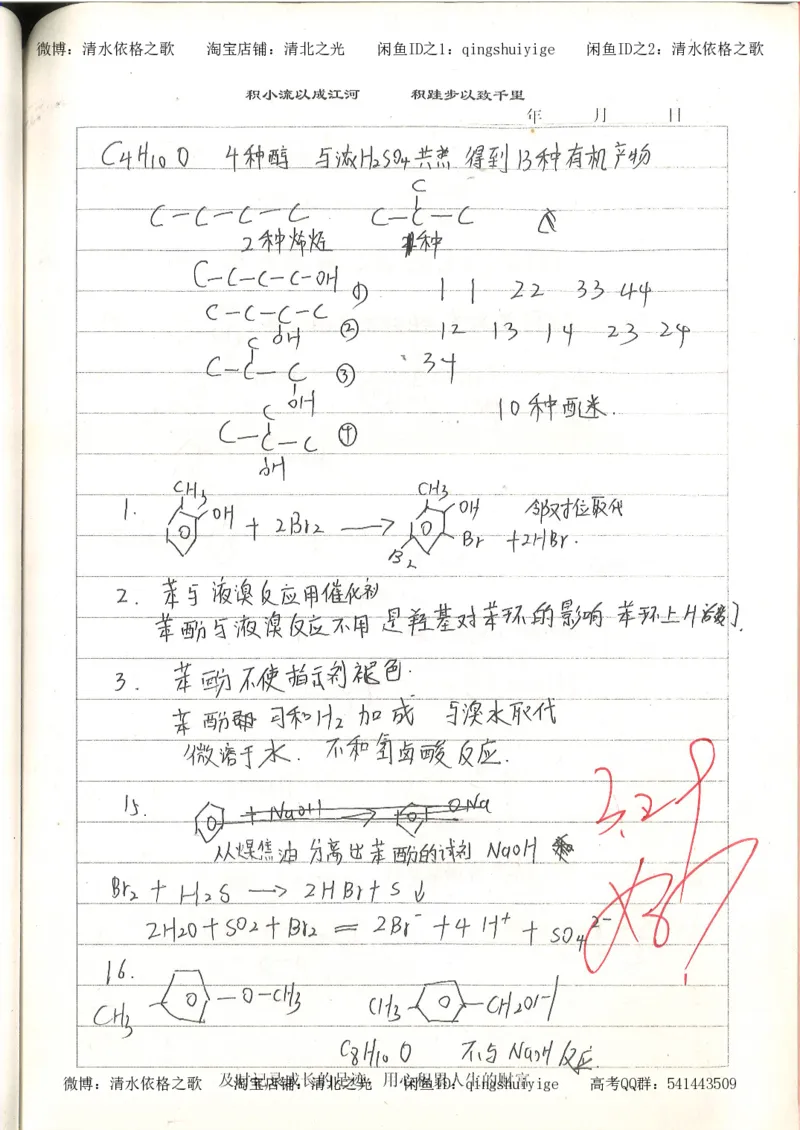 微博：清水依格之歌 淘宝店铺：清北之光 闲鱼ID之1：qingshuiyige 闲鱼ID之2：清水依格之歌
积小流以成江河 积跬步以致千里
年 月 日
C4H10O 4种醇 与浓H2SO4共热 得到13种有机产物
C
C-C-C-C C-C-C
2种烯烃 1种
C-C-C-C-OH ① 11 22 33 44
C-C-C-C
OH ② 12 13 14 23 24
C
C-C-C ③ 34
OH
10种醚.
C
C-C-C ④
OH
1. CH3 OH + 2Br2 → CH3 OH Br Br +2HBr. 邻对位取代
2. 苯与液溴反应用催化剂
苯酚与液溴反应不用 是羟基对苯环的影响 苯环上H活泼了.
3. 苯酚不使指示剂褪色.
苯酚 可和H2加成 与溴水取代
微溶于水. 不和氢卤酸反应.
15. + NaOH → ONa
从煤焦油分离出苯酚的试剂 NaOH
Br2 + H2S → 2HBr + S↓
2H2O + SO2 + Br2 = 2Br⁻ + 4H⁺ + SO4²⁻
3.2
好!
16.
CH3 -O-CH3 CH3 -CH2OH
C8H10O 不与NaOH反应.
及时记录成长的足迹 用心积累人生的财富
微博：清水依格之歌 淘宝店铺：清北之光 闲鱼ID：qingshuiyige 高考QQ群：541443509